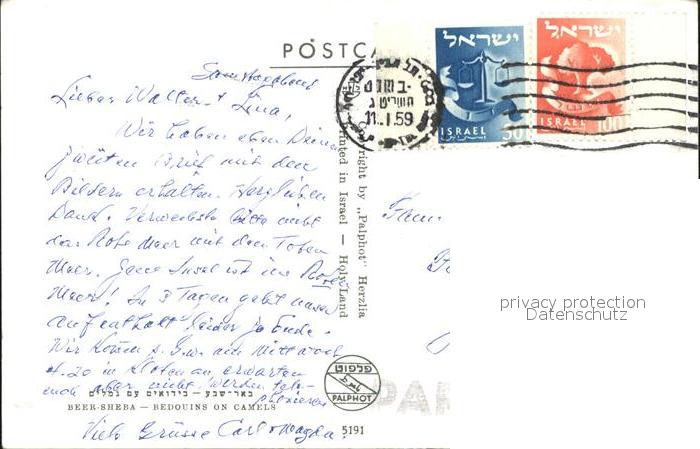 POSTCA
Samstagabend
Lieber Walter + Lina,
Wir haben eben Deinen
zweiten Brief mit den
Bildern erhalten. Herzlichen
Dank. Verwechsle bitte nicht
das Rote Meer mit dem Toten
Meer. Jene Insel ist im Roten
Meer! In 3 Tagen geht unser
Aufenthalt leider zu Ende.
Wir kommen s. G. w. am Mittwoch
4.20 in Kloten an, erwarten
euch aber nicht! Werden tele-
phonieren
באר-שבע — בידואים עם גמלים
BEER-SHEBA — BEDOUINS ON CAMELS
Viele Grüsse Carl + Magda.
5191
right by „Palphot" Herzlia
Printed in Israel — Holy Land
פלפוט
PALPHOT
ישראל
ISRAEL
50
ישראל
ISRAEL
100
11. I 59
Fam.
PAR
privacy protection
Datenschutz